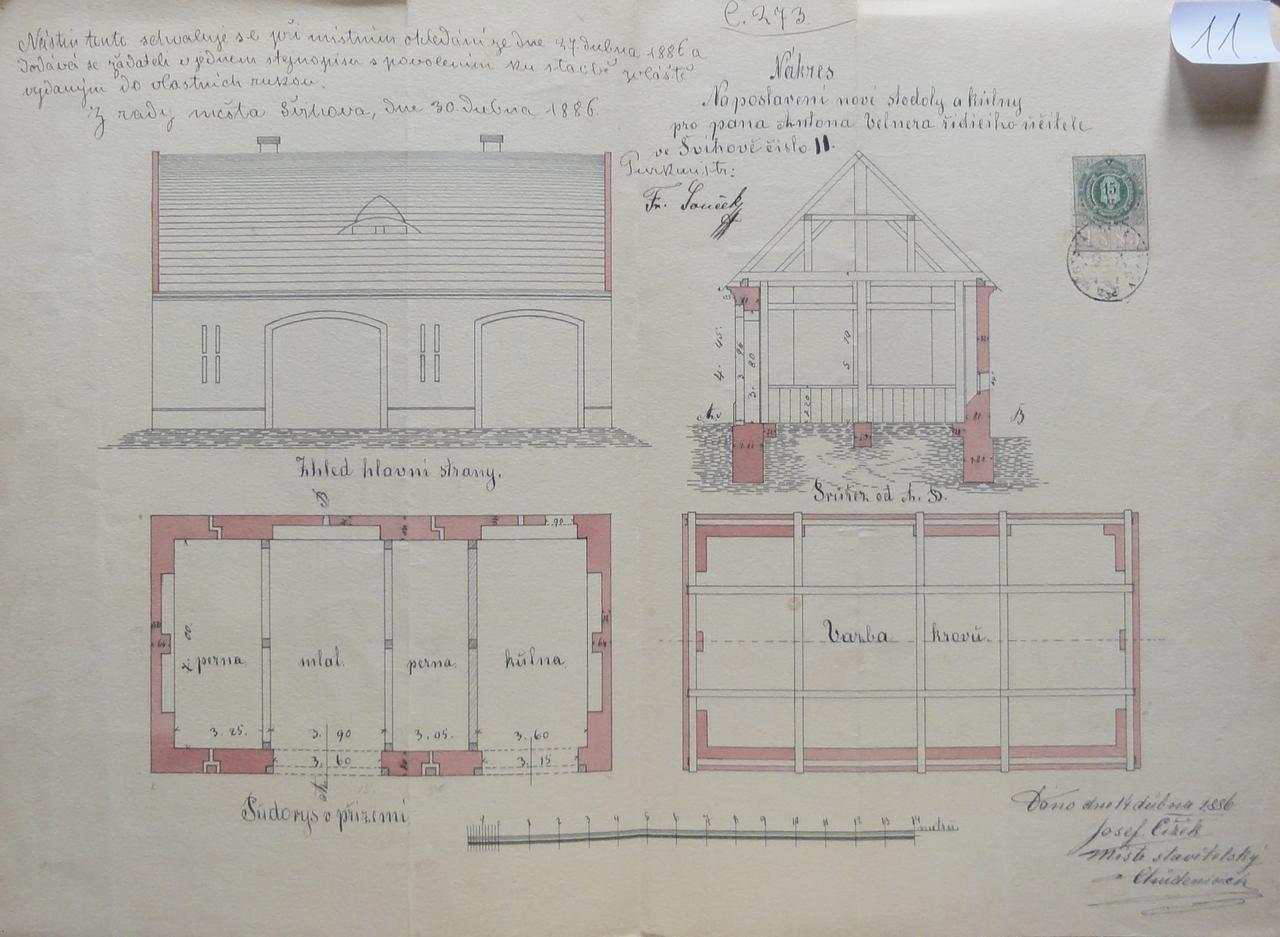 C. 273.
11
Nástin tento schvaluje se při místním ohledání ze dne 27 dubna 1886 a
dodává se žádateli v jednem stejnopisu s povolením ku stavbě zvláště
vydaným do vlastních rukou.
Z rady města Švihova, dne 30. dubna 1886.
Nákres
Na postavení nové stodoly a kůlny
pro pana Antona Velnera řídícího učitele
ve Švihově číslo 11.
Purkmistr:
Fr. Souček
15
4. 45.
3. 80
5 70
1.20
A
B
Zhled hlavní strany.
Průřez od A. B.
B
90
perna
mlat.
perna.
kůlna
7. 00.
64
64
3. 25.
3. 90
3. 05.
3. 60
3. 60
3. 15
A
Vazba krovů.
Půdorys v přízemí
1 1 2 3 4 5 6 7 8 9 10 11 12 13 14 metrů
Dáno dne 14 dubna 1886
Josef Čížek
Mistr stavitelský
v Chudenicích